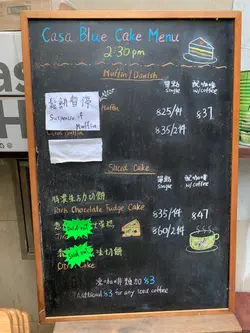 Casa Blue Cake Menu
2:30 pm
Muffin / Danish
單點 Single
配咖啡 w/coffee
鬆餅暫停
Suspend of Muffin
Muffin
$25/件 $37
$35/2件
Sliced Cake
單點 Single
配咖啡 w/coffee
特濃生古力切餅
Rich Chocolate Fudge Cake $35/件 $47
Sold out $60/2件
切餅
Sold out
Cake
凍咖啡類加 $3
Additional $3 for any Iced coffee